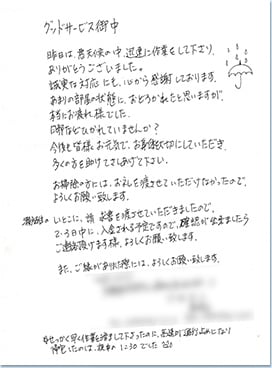 グッドサービス御中
昨日は、悪天候の中、迅速に作業をして下さり、
ありがとうございました。
誠実な対応にも、心から感謝しております。
あまりの部屋の状態に、おどろかれたと思いますが、
本当にお疲れ様でした。
口邪などひかれていませんか?
今後も皆様、お元気で、お身体大切にしていただき、
多くの方を助けてさしあげて下さい。
お掃除の方には、お礼を渡させていただけなかったので、
よろしくお願い致します。
いとこに、請求書を渡させていただきましたので、
2.3日中に、入金される予定ですので、確認が出来ましたら
ご連絡頂けます様、よろしくお願い致します。
また、ご縁がありました際には、よろしくお願い致します。
せっかく早く作業を済まして下さったのに、高速が通行止めになり
帰宅したのは、夜中の1:30でした